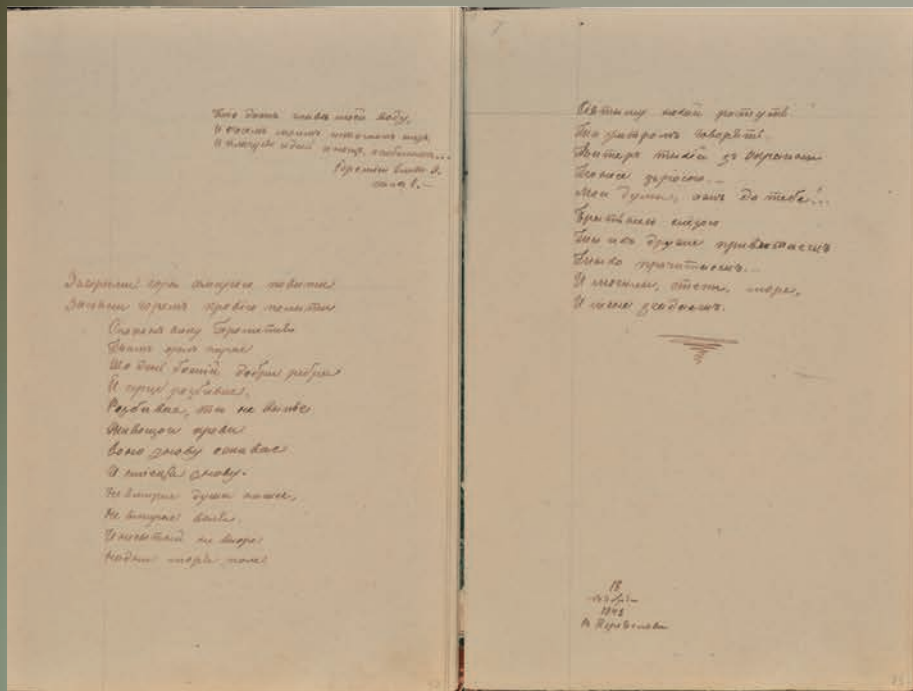 Кто дастъ главѣ моей воду,
И очесемъ моимъ источникъ слезъ,
И плачуся и день и нощь, о побиенныхъ...
Іереміи Глава 9.
стихъ 1.—
За горами горы хмарою повыти
Засіяни горемъ кровію политы
Споконъ вику Прометея
Тамъ орелъ карае
Що день Божій добри ребра
И серце розбивае.
Розбивае, та не выпье
Живущои крови
Воно знову ожывае
И сміется знову.
Не вмирае душа наша,
Не вмирае воля.
И неситый не выоре
На дни моря поле
ростуть
Та зъ витромъ говорять.
Витеръ тихій зъ Украины
Поносе зъ росою...
Мои думы, ажъ до тебе!..
Братнею слезою
Ты ихъ друже привитаешъ
Тихо прочитаешъ...
И могилы, степы, море,
И мене згадаешъ.
18
1845
в Переяслови